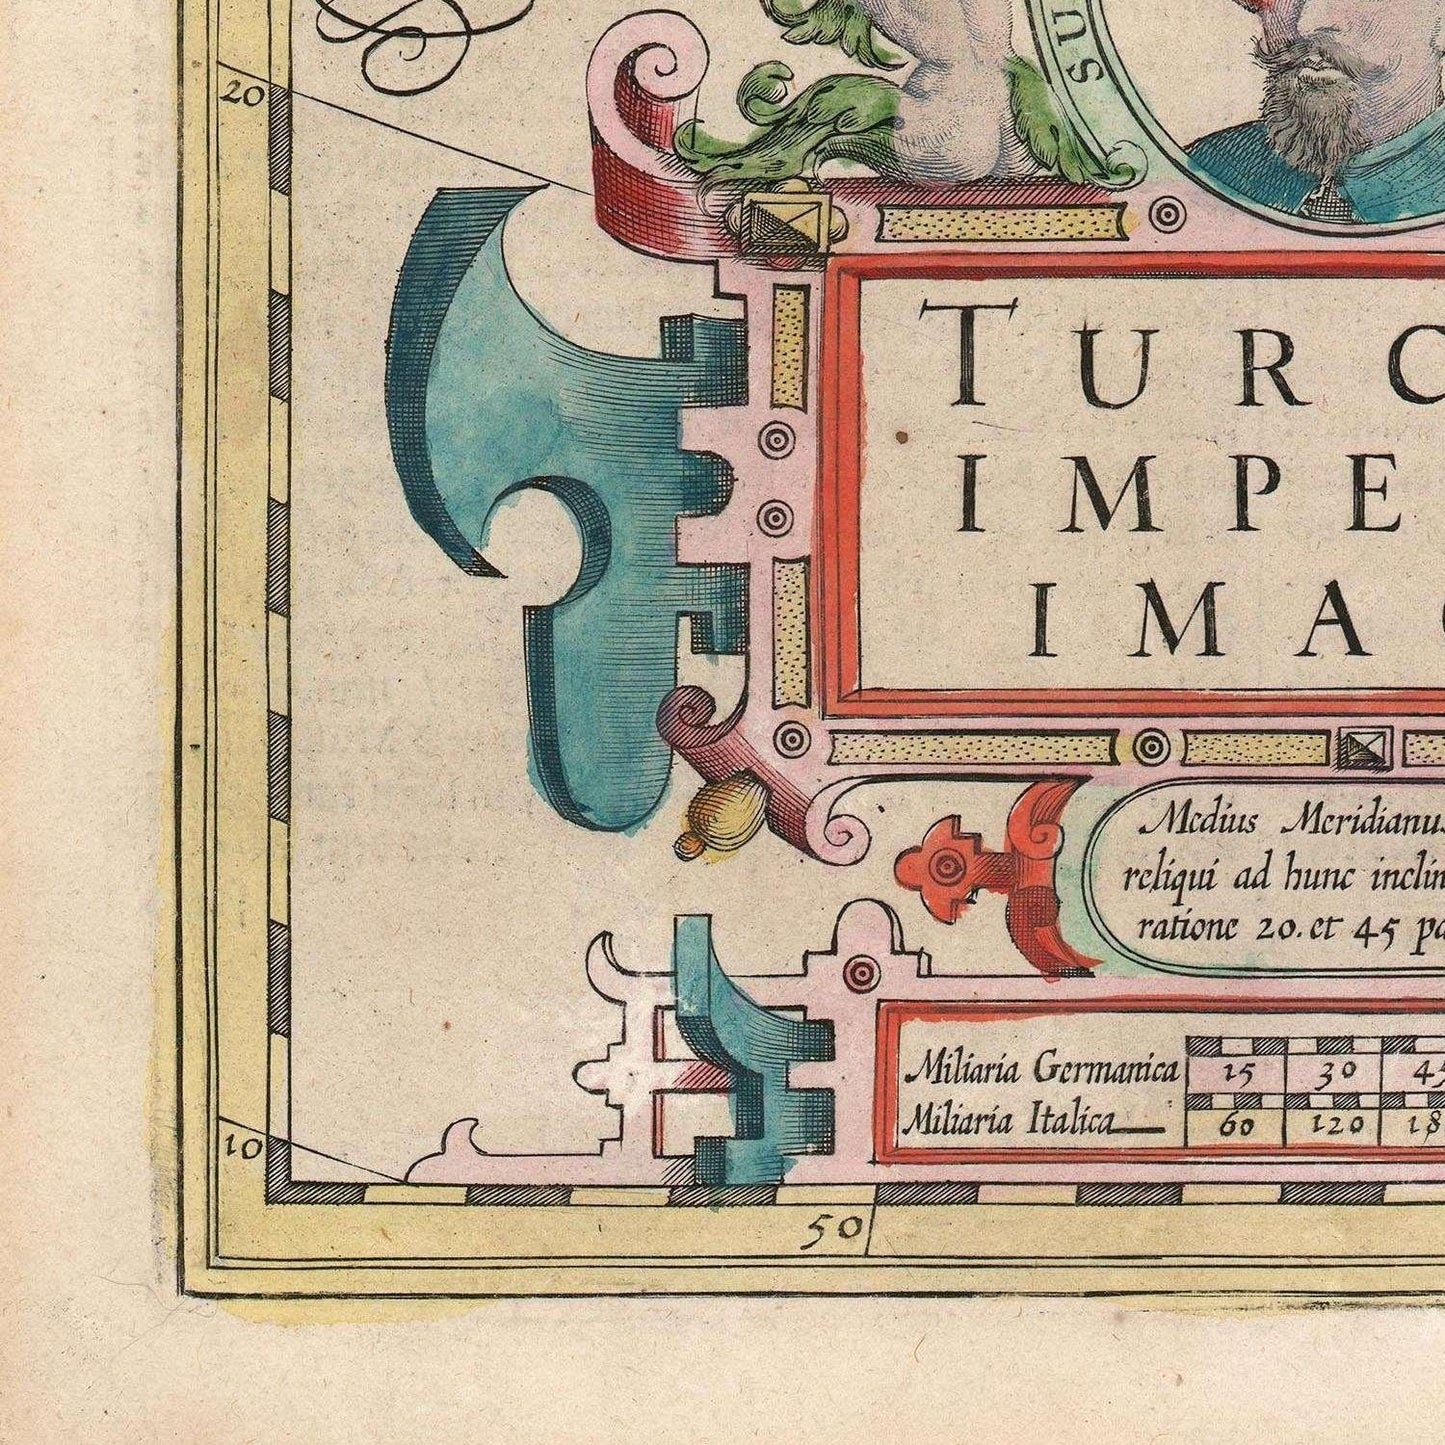 20
SU
TURC
IMPE
IMA
Medius Meridianus
reliqui ad hunc inclin
ratione 20. et 45 pa
Miliaria Germanica 15 30 45
Miliaria Italica 60 120 18
10
50